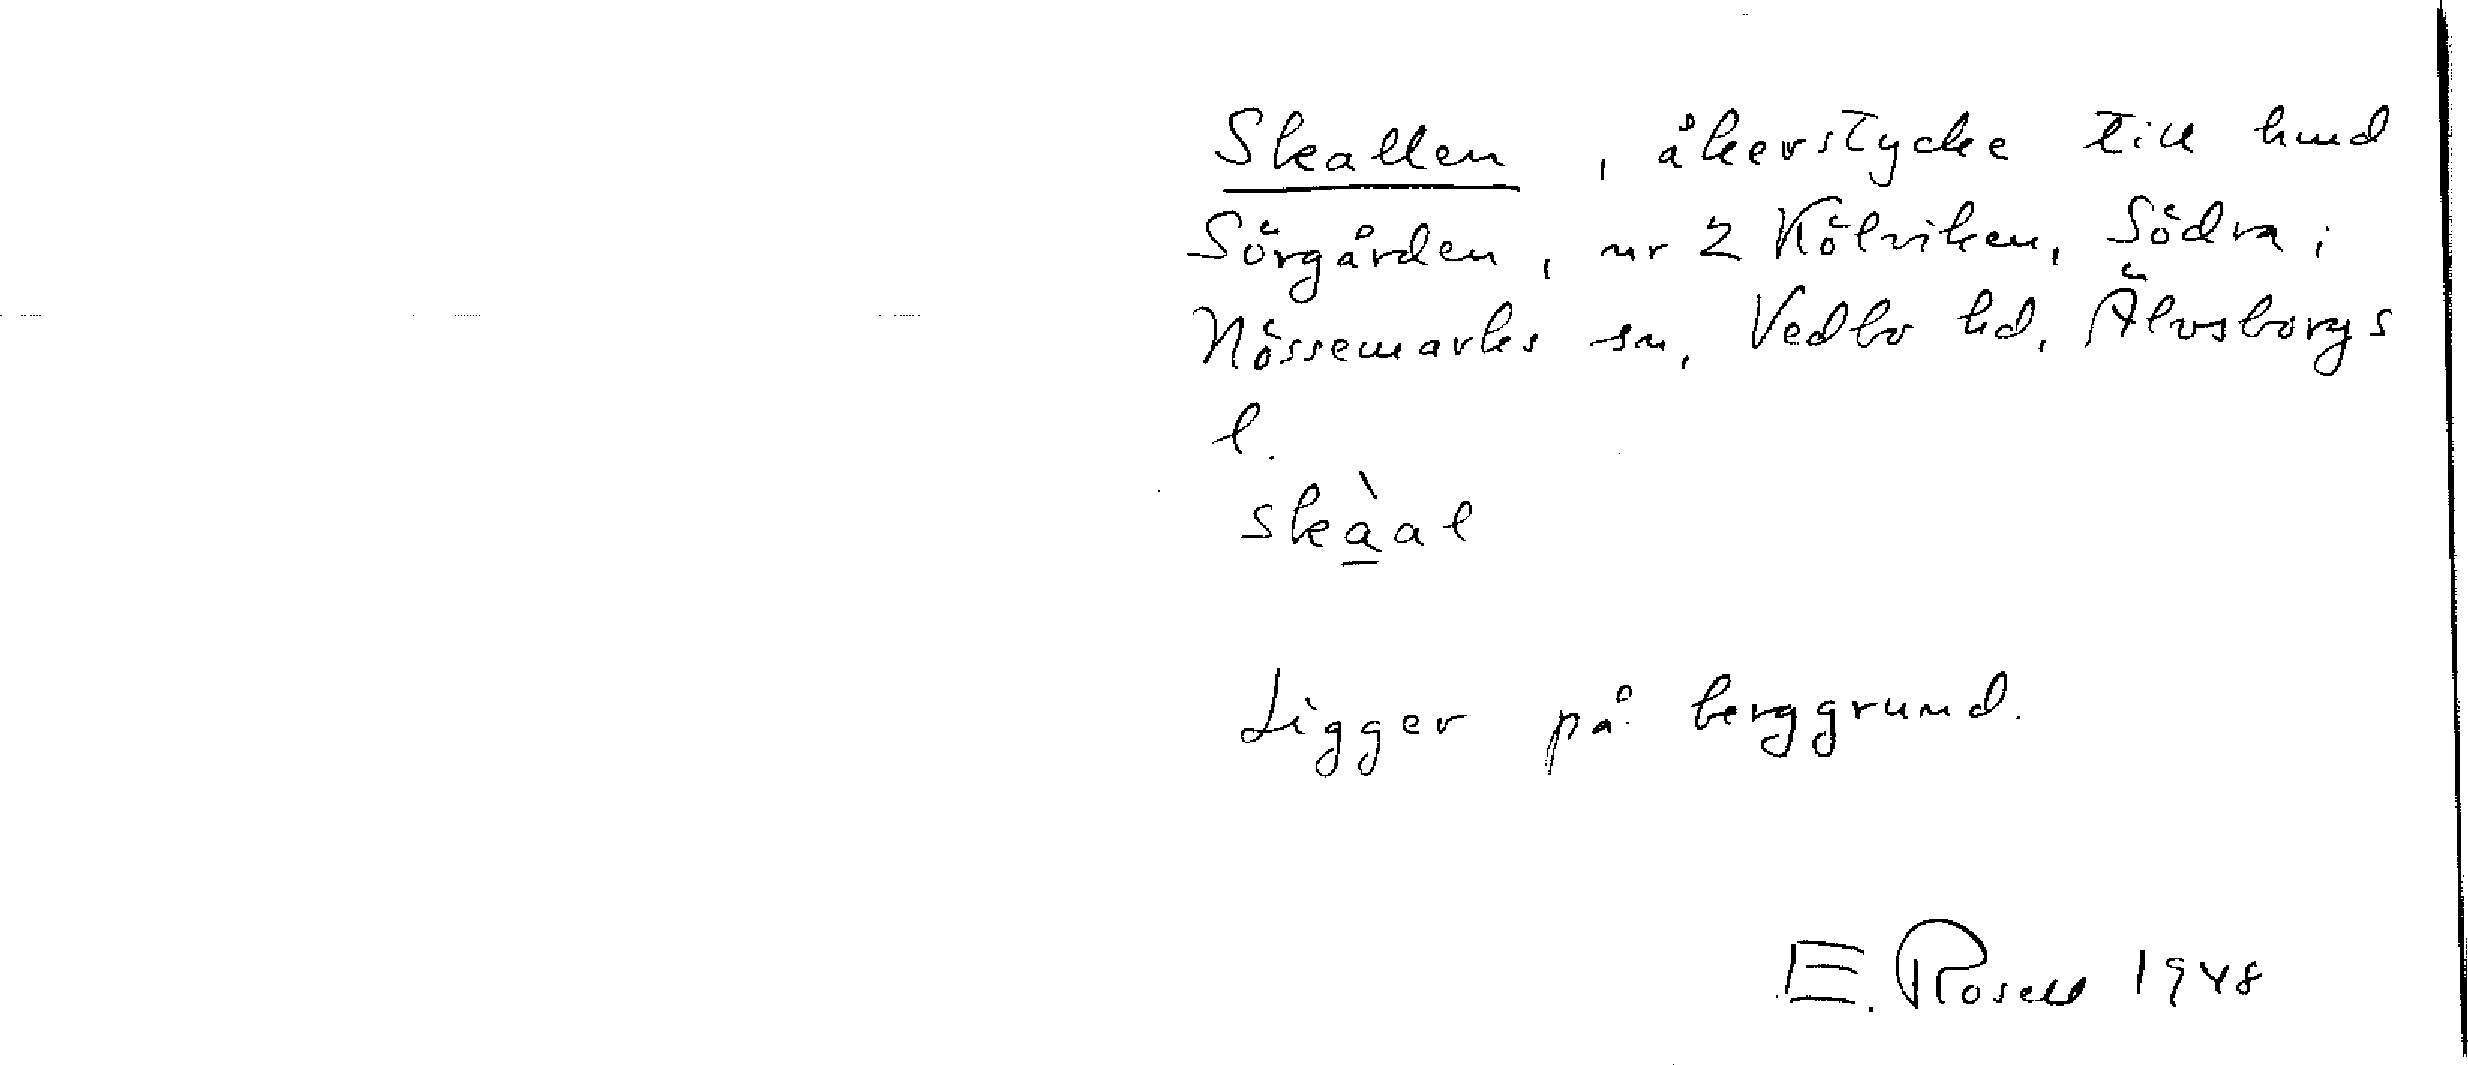 Skallen, åkerstycke till hmd
Sörgården, nr 2 Kölviken, Södra i
Nössemarks sn, Vedbo hd, Älvsborgs
l.
skàal
Ligger på berggrund.
E. Rosell 1948